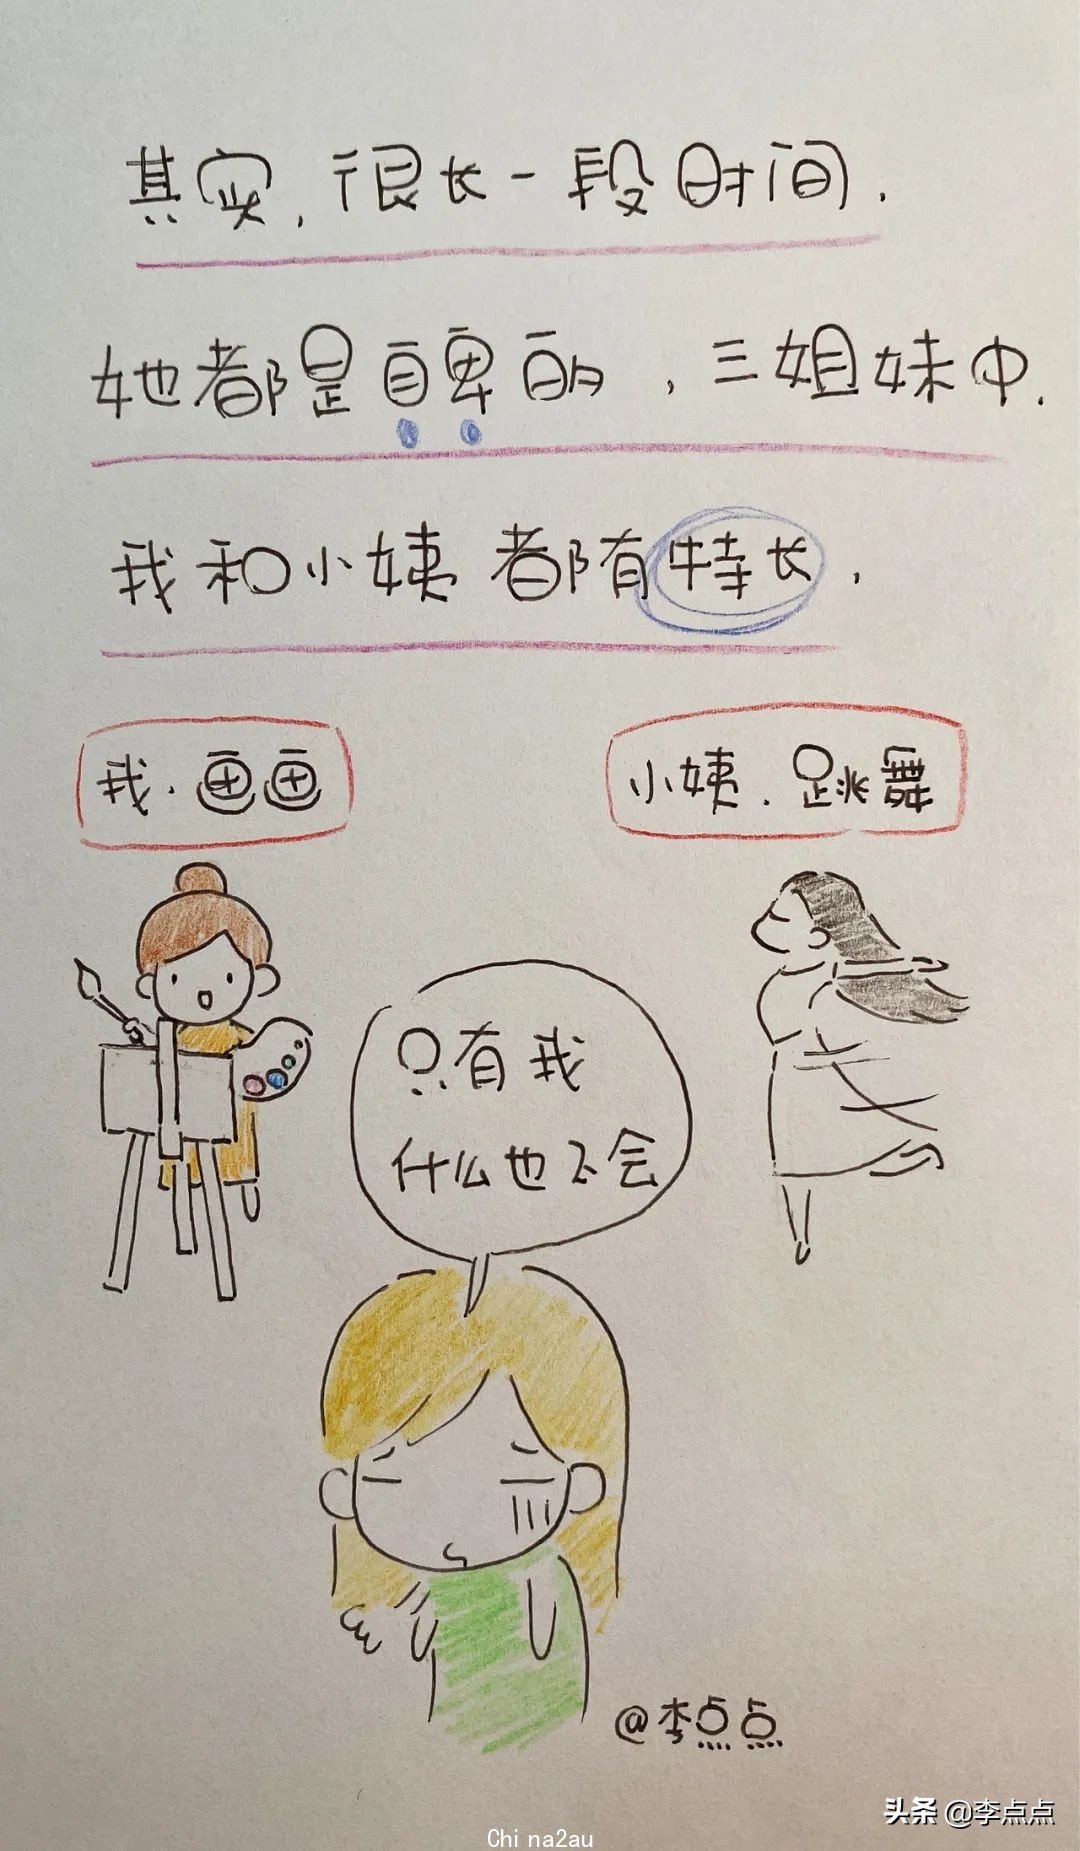 其实，很长一段时间，
她都是自卑的，三姐妹中，
我和小姨都有特长，
我·画画
小姨·跳舞
只有我
什么也不会
@李点点
头条 @李点点
China2au